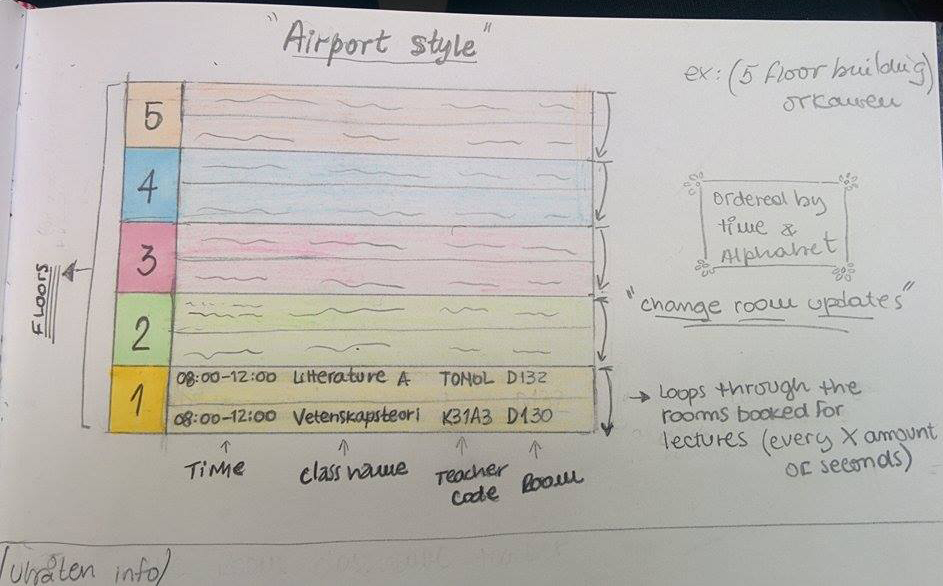 "Airport style"
ex: (5 floor building)
orkanen
5
4
3
2
1
Floors
08:00-12:00 Litterature A TOMOL D132
08:00-12:00 Vetenskapsteori K31A3 D130
Time
Class name
Teacher
code
Room
Ordered by
time &
Alphabet
"change room updates"
→ Loops through the
rooms booked for
lectures (every X amount
of seconds)
info)